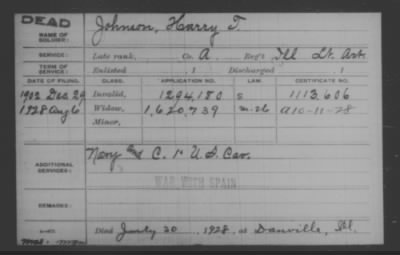 DEAD
NAME OF SOLDIER: Johnson, Harry T.
SERVICE: Late rank, Co. A Reg't Ill Lt. Art.
TERM OF SERVICE: Enlisted , 1 Discharged , 1
DATE OF FILING. CLASS. APPLICATION NO. LAW. CERTIFICATE NO.
1902 Dec. 29 Invalid, 1294,180 S 1113,606
1928 Aug 6 Widow, 1,620,739 m-26 A10-11-28
Minor,
ADDITIONAL SERVICES: Navy and C. 1" U.S. Cav.
WAR WITH SPAIN
REMARKS:
Died July 20, 1928, at Danville, Ill.